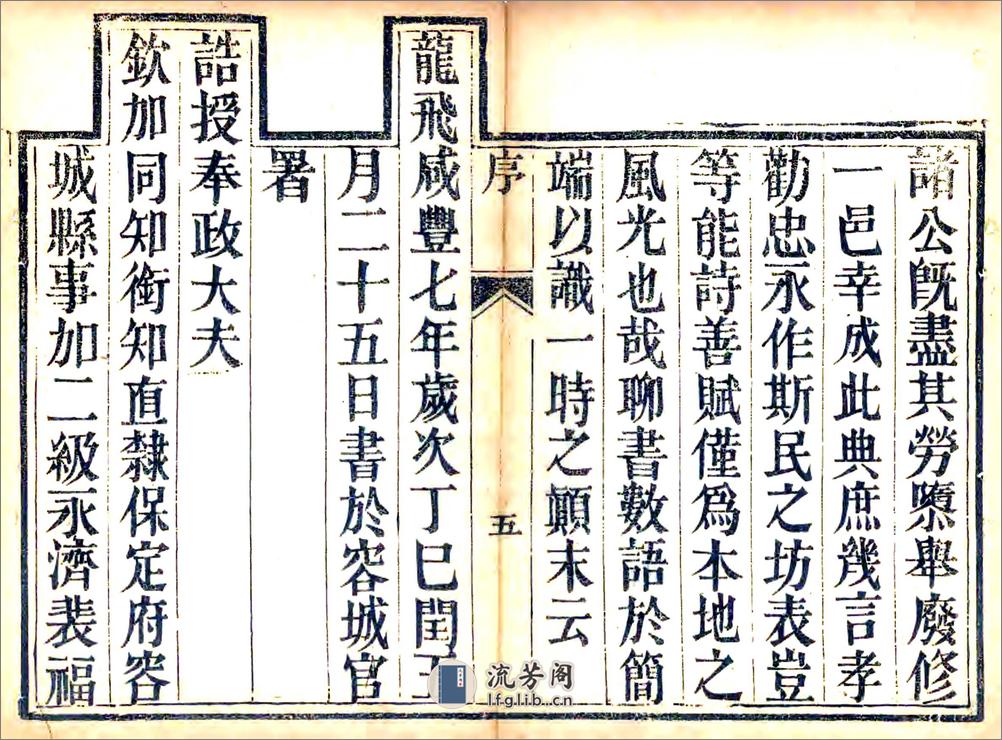 諸公既盡其勞隳舉廢修
一邑幸成此典庶幾言孝
勸忠永作斯民之坊表豈
等能詩善賦僅爲本地之
風光也哉聊書數語於簡
端以識一時之顚末云
序
五
龍飛咸豐七年歲次丁巳閏五
月二十五日書於容城官
署
誥授奉政大夫
欽加同知銜知直隸保定府容
城縣事加二級永濟裴福
流芳阁
lfglib.cn